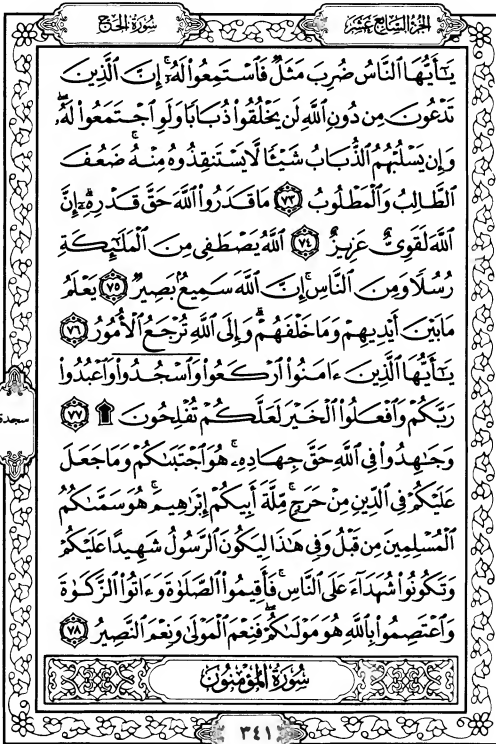 الجزء السابع عشر
سورة الحج
يَٰٓأَيُّهَا ٱلنَّاسُ ضُرِبَ مَثَلٌ فَٱسْتَمِعُوا۟ لَهُۥٓ ۚ إِنَّ ٱلَّذِينَ
تَدْعُونَ مِن دُونِ ٱللَّهِ لَن يَخْلُقُوا۟ ذُبَابًا وَلَوِ ٱجْتَمَعُوا۟ لَهُۥ ۖ
وَإِن يَسْلُبْهُمُ ٱلذُّبَابُ شَيْـًٔا لَّا يَسْتَنقِذُوهُ مِنْهُ ۚ ضَعُفَ
ٱلطَّالِبُ وَٱلْمَطْلُوبُ ٧٣ مَا قَدَرُوا۟ ٱللَّهَ حَقَّ قَدْرِهِۦٓ ۗ إِنَّ
ٱللَّهَ لَقَوِىٌّ عَزِيزٌ ٧٤ ٱللَّهُ يَصْطَفِى مِنَ ٱلْمَلَٰٓئِكَةِ
رُسُلًا وَمِنَ ٱلنَّاسِ ۚ إِنَّ ٱللَّهَ سَمِيعٌۢ بَصِيرٌ ٧٥ يَعْلَمُ
مَا بَيْنَ أَيْدِيهِمْ وَمَا خَلْفَهُمْ ۗ وَإِلَى ٱللَّهِ تُرْجَعُ ٱلْأُمُورُ ٧٦
يَٰٓأَيُّهَا ٱلَّذِينَ ءَامَنُوا۟ ٱرْكَعُوا۟ وَٱسْجُدُوا۟ وَٱعْبُدُوا۟
رَبَّكُمْ وَٱفْعَلُوا۟ ٱلْخَيْرَ لَعَلَّكُمْ تُفْلِحُونَ ۩ ٧٧
سجدة
وَجَٰهِدُوا۟ فِى ٱللَّهِ حَقَّ جِهَادِهِۦ ۚ هُوَ ٱجْتَبَىٰكُمْ وَمَا جَعَلَ
عَلَيْكُمْ فِى ٱلدِّينِ مِنْ حَرَجٍ ۚ مِّلَّةَ أَبِيكُمْ إِبْرَٰهِيمَ ۚ هُوَ سَمَّىٰكُمُ
ٱلْمُسْلِمِينَ مِن قَبْلُ وَفِى هَٰذَا لِيَكُونَ ٱلرَّسُولُ شَهِيدًا عَلَيْكُمْ
وَتَكُونُوا۟ شُهَدَآءَ عَلَى ٱلنَّاسِ ۚ فَأَقِيمُوا۟ ٱلصَّلَوٰةَ وَءَاتُوا۟ ٱلزَّكَوٰةَ
وَٱعْتَصِمُوا۟ بِٱللَّهِ هُوَ مَوْلَىٰكُمْ ۖ فَنِعْمَ ٱلْمَوْلَىٰ وَنِعْمَ ٱلنَّصِيرُ ٧٨
سورة المؤمنون
٣٤١